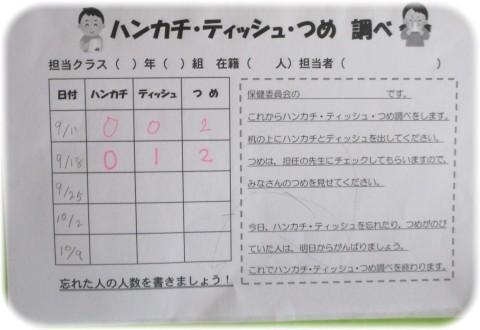 ハンカチ・ティッシュ・つめ 調べ
担当クラス（ ）年（ ）組 在籍（ 人）担当者（ ）
日付 ハンカチ ティッシュ つめ
9/11 0 0 2
9/18 0 1 2
9/25
10/2
10/9
忘れた人の人数を書きましょう！
保健委員会の です。
これからハンカチ・ティッシュ・つめ調べをします。
机の上にハンカチとティッシュを出してください。
つめは、担任の先生にチェックしてもらいますので、
みなさんのつめを見せてください。
今日、ハンカチ・ティッシュを忘れたり、つめがのび
ていた人は、明日からがんばりましょう。
これでハンカチ・ティッシュ・つめ調べを終わります。